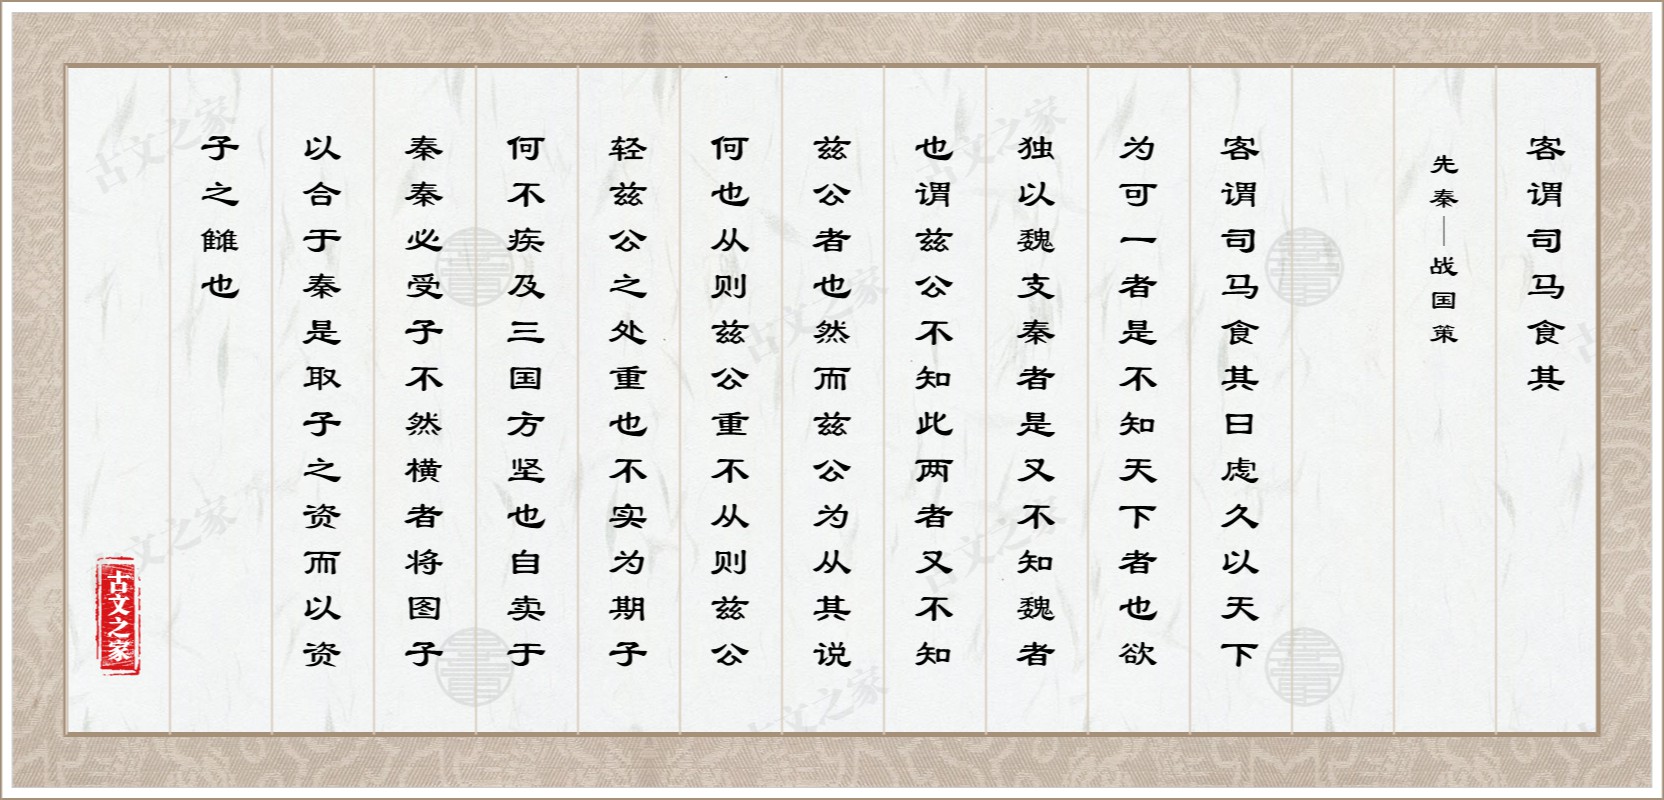 客谓司马食其
先秦—战国策
客谓司马食其曰虑久以天下
为可一者是不知天下者也欲
独以魏支秦者是又不知魏者
也谓兹公不知此两者又不知
兹公者也然而兹公为从其说
何也从则兹公重不从则兹公
轻兹公之处重也不实为期子
何不疾及三国方坚也自卖于
秦秦必受子不然横者将图子
以合于秦是取子之资而以资
子之雠也
古文之家